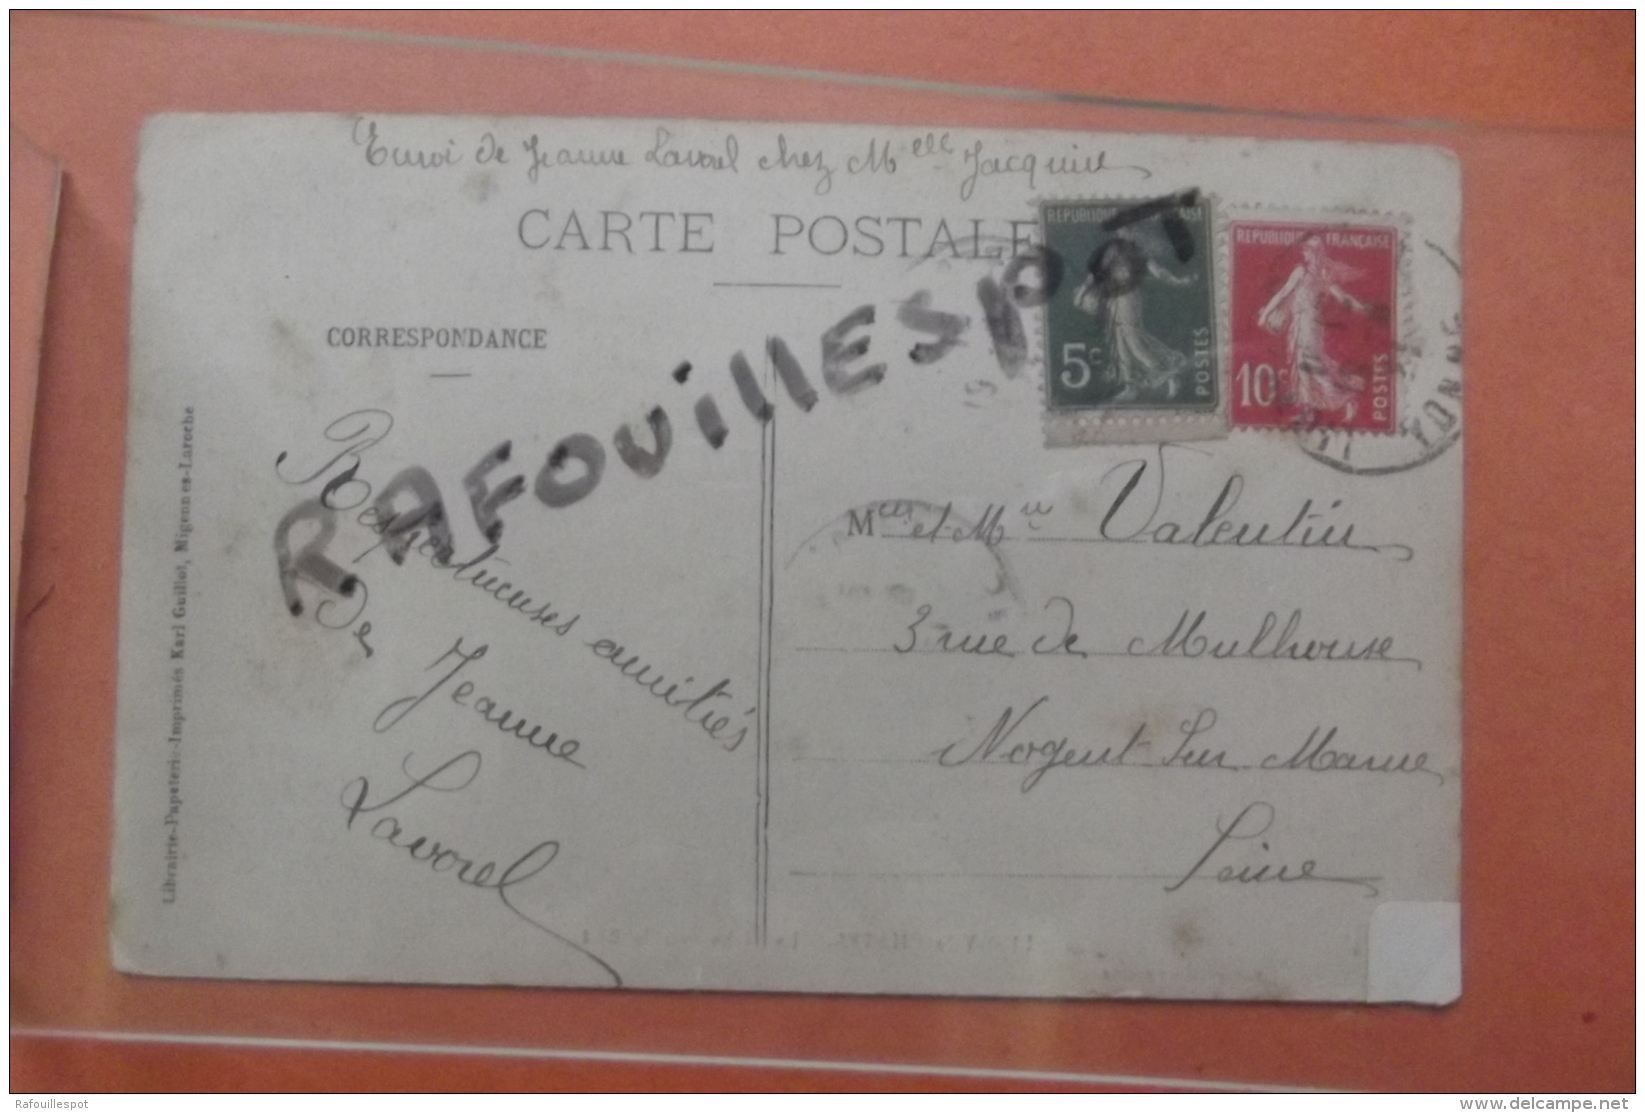 Envoi de Jeanne Lavorel chez Melle Jacquin
CARTE POSTALE
REPUBLIQUE FRANÇAISE
5c
POSTES
REPUBLIQUE FRANÇAISE
10c
POSTES
YONNE
RAFOUillESpoT
CORRESPONDANCE
Respectueuses amitiés
de Jeanne
Lavorel
et Valentin
3 rue de Mulhouse
Nogent sur Marne
Seine
Librairie-Papeterie-Imprimés Karl Guillot, Migennes-Laroche
Rafouillespot
www.delcampe.net